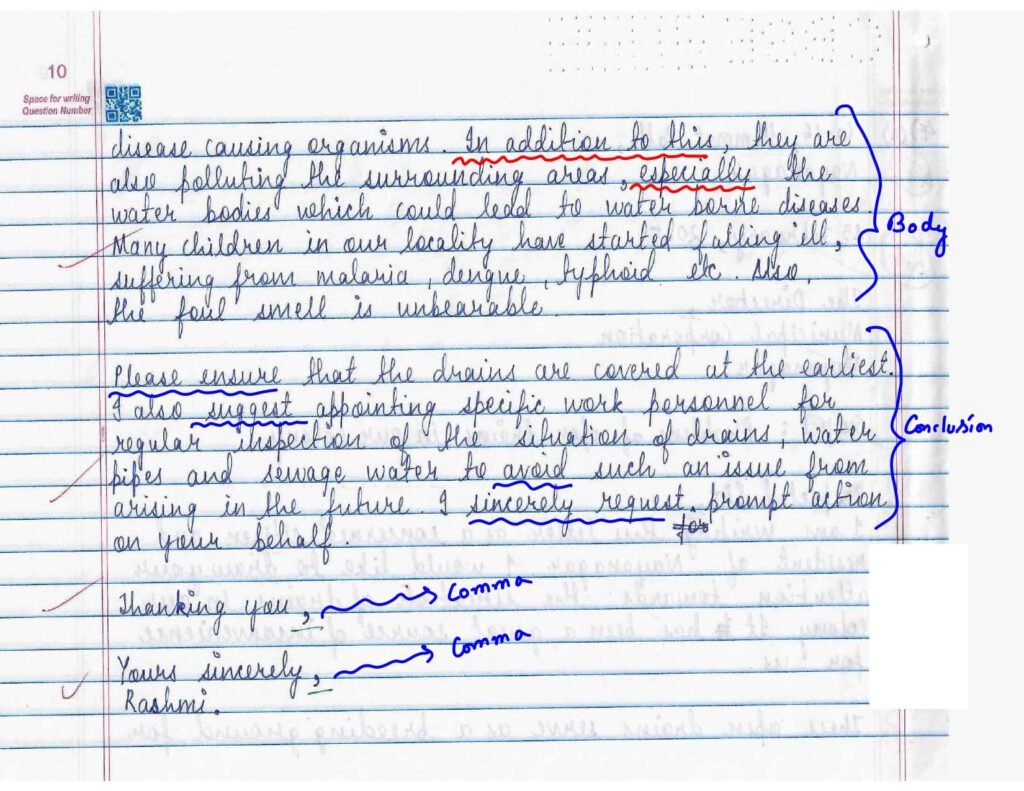 10
Space for writing
Question Number
disease causing organisms. In addition to this, they are
also polluting the surrounding areas, especially the
water bodies which could lead to water borne diseases.
Body
Many children in our locality have started falling ill,
suffering from malaria, dengue, typhoid etc. Also,
the foul smell is unbearable.
Please ensure that the drains are covered at the earliest.
I also suggest appointing specific work personnel for
regular inspection of the situation of drains, water
Conclusion
pipes and sewage water to avoid such an issue from
arising in the future. I sincerely request prompt action
for
on your behalf.
Thanking you,
Comma
Yours sincerely,
Comma
Rashmi.